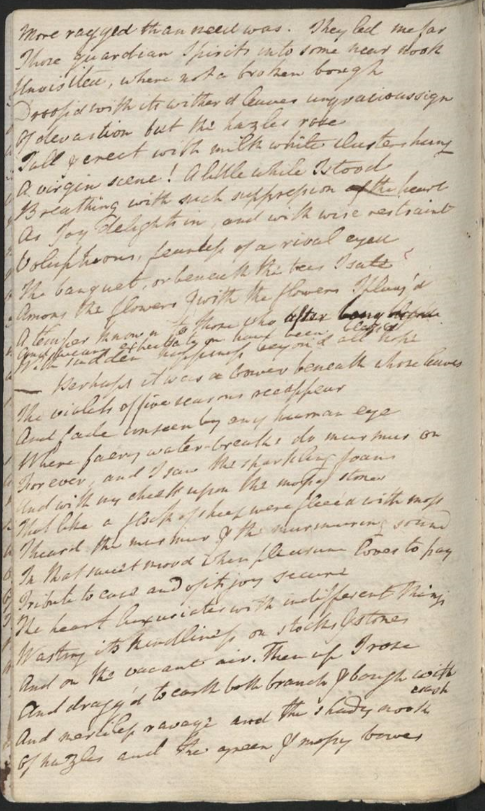 More ragged than need was. They led me far
Those guardian Spirits into some near nook
Unvisited, where not a broken bough
Droop'd with its wither'd leaves ungracious sign
Of devastion but the hazles rose
Tall & erect with milk white clusters hung
A virgin scene! A little while I stood
Breathing with such suppression of the heart
As Joy delights in, and with wise restraint
Voluptuous, fearless of a rival eyed
The banquet, or beneath the trees I sate
Among the flowers & with the flowers I play'd
A temper known to those who after long
and weary expectation have been bless'd
With sudden happiness beyond all hope
— Perhaps it was a bower beneath whose leaves
The violets of five seasons reappear
And fade unseen by any human eye
Where faery water-breaks do murmur on
For ever, and I saw the sparkling foam
And with my cheek upon the mossy stones
That like a flock of sheep were fleec'd with moss
I heard the murmur & the murmuring sound
In that sweet mood when pleasure loves to pay
Tribute to ease and of its joy secure
The heart luxuriates with indifferent things
Wasting its kindliness on stocks & stones
And on the vacant air. Then up I rose
And dragg'd to earth both branch & bough with
crash
And merciless ravage and the shady nook
Of hazles and the green & mossy bower